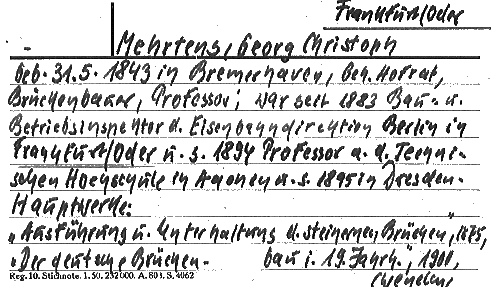 Frankfurt/Oder
Mehrtens, Georg Christoph
geb. 31.5. 1843 in Bremerhaven, Geh. Hofrat,
Brückenbauer, Professor; war seit 1883 Bau- u.
Betriebsinspektor d. Eisenbahndirektion Berlin in
Frankfurt/Oder u. s. 1894 Professor a. d. Techni-
schen Hochschule in Aachen u. s. 1895 in Dresden.
Hauptwerke:
„Ausführung u. Unterhaltung d. steinernen Brücken",
„Der deutsche Brückenbau i. 19. Jahrh.", 1900,
Reg. 10. Stichnote. 1. 50. 232 000. A. 601. S. 4062